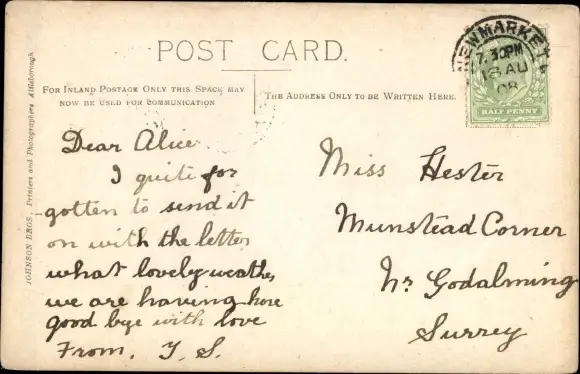 POST CARD.
FOR INLAND POSTAGE ONLY THIS SPACE MAY
NOW BE USED FOR COMMUNICATION
THE ADDRESS ONLY TO BE WRITTEN HERE.
JOHNSON BROS. Printers and Photographers Attleborough
NEWMARKET
7.30PM
18 AU
08
HALF PENNY
Dear Alice
I quiti for
gotten to send it
on with the letter
what lovely weather
we are having here
good bye with love
From. Y. S.
Miss Hester
Munstead Corner
Nr Godalming
Surrey